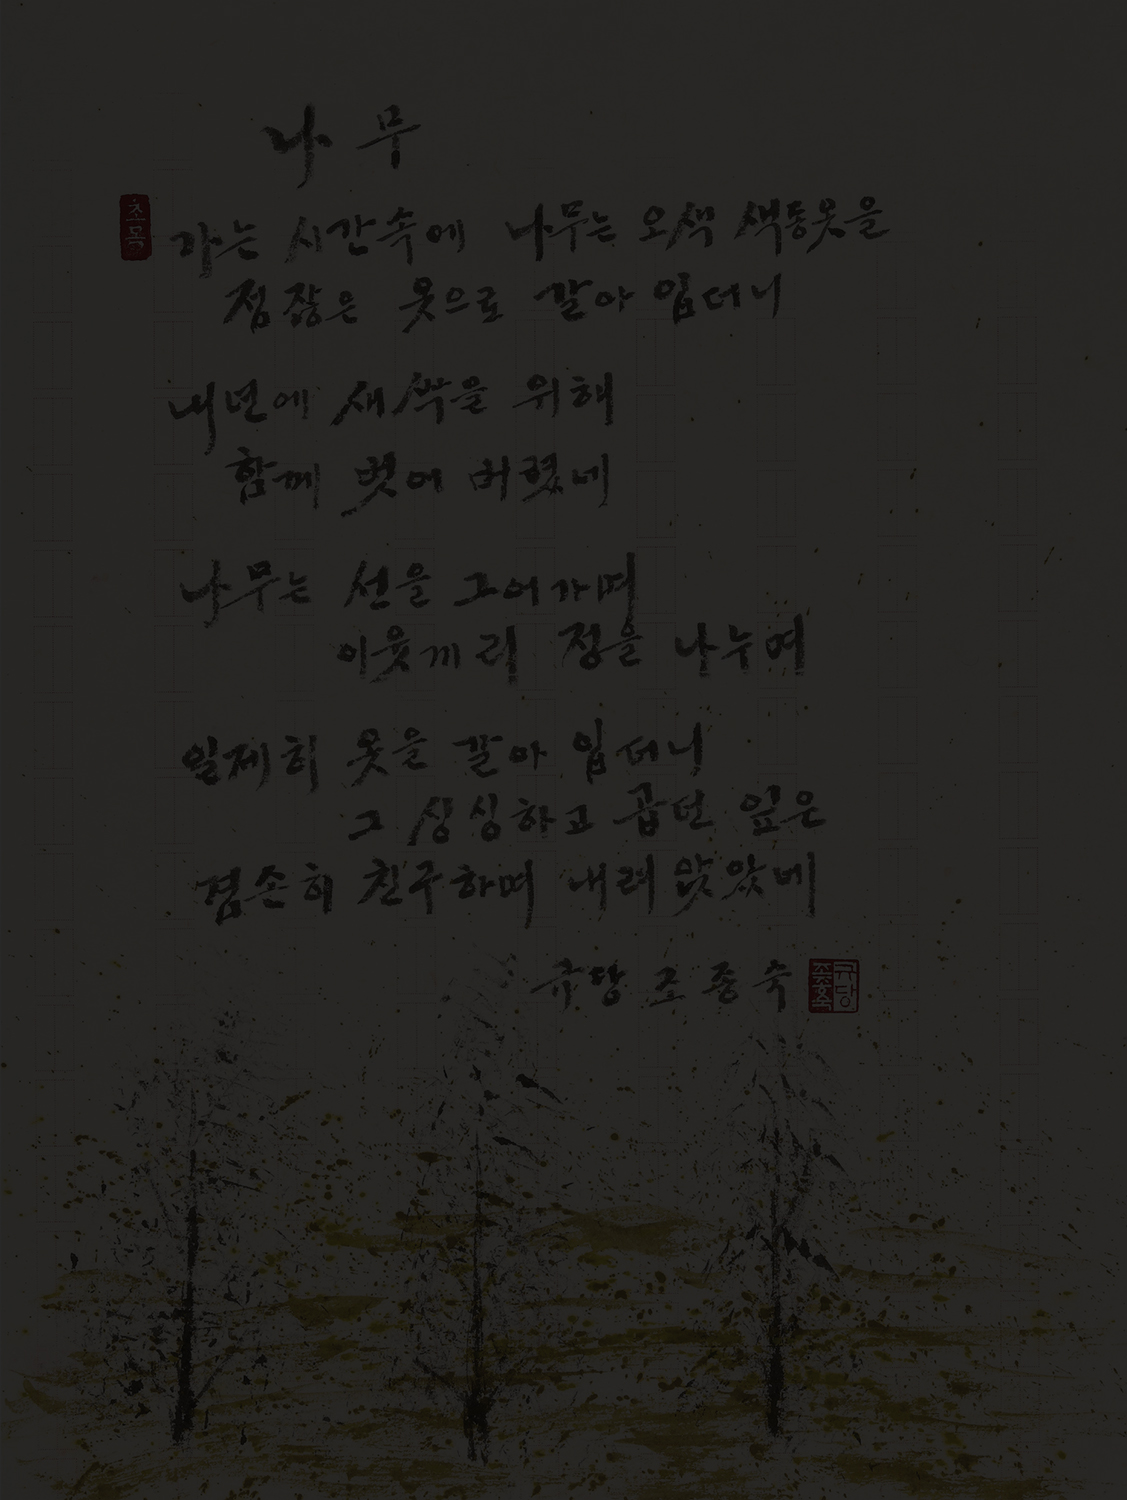 나무
초목
가는 시간속에 나무는 오색 색동옷을
점잖은 옷으로 갈아 입더니
내년에 새싹을 위해
함께 벗어 버렸네
나무는 선을 그어가며
이웃끼리 정을 나누며
일제히 옷을 갈아 입더니
그 싱싱하고 곱던 잎은
겸손히 친구하며 내려 앉았네
규당 조종숙
규당
조종숙